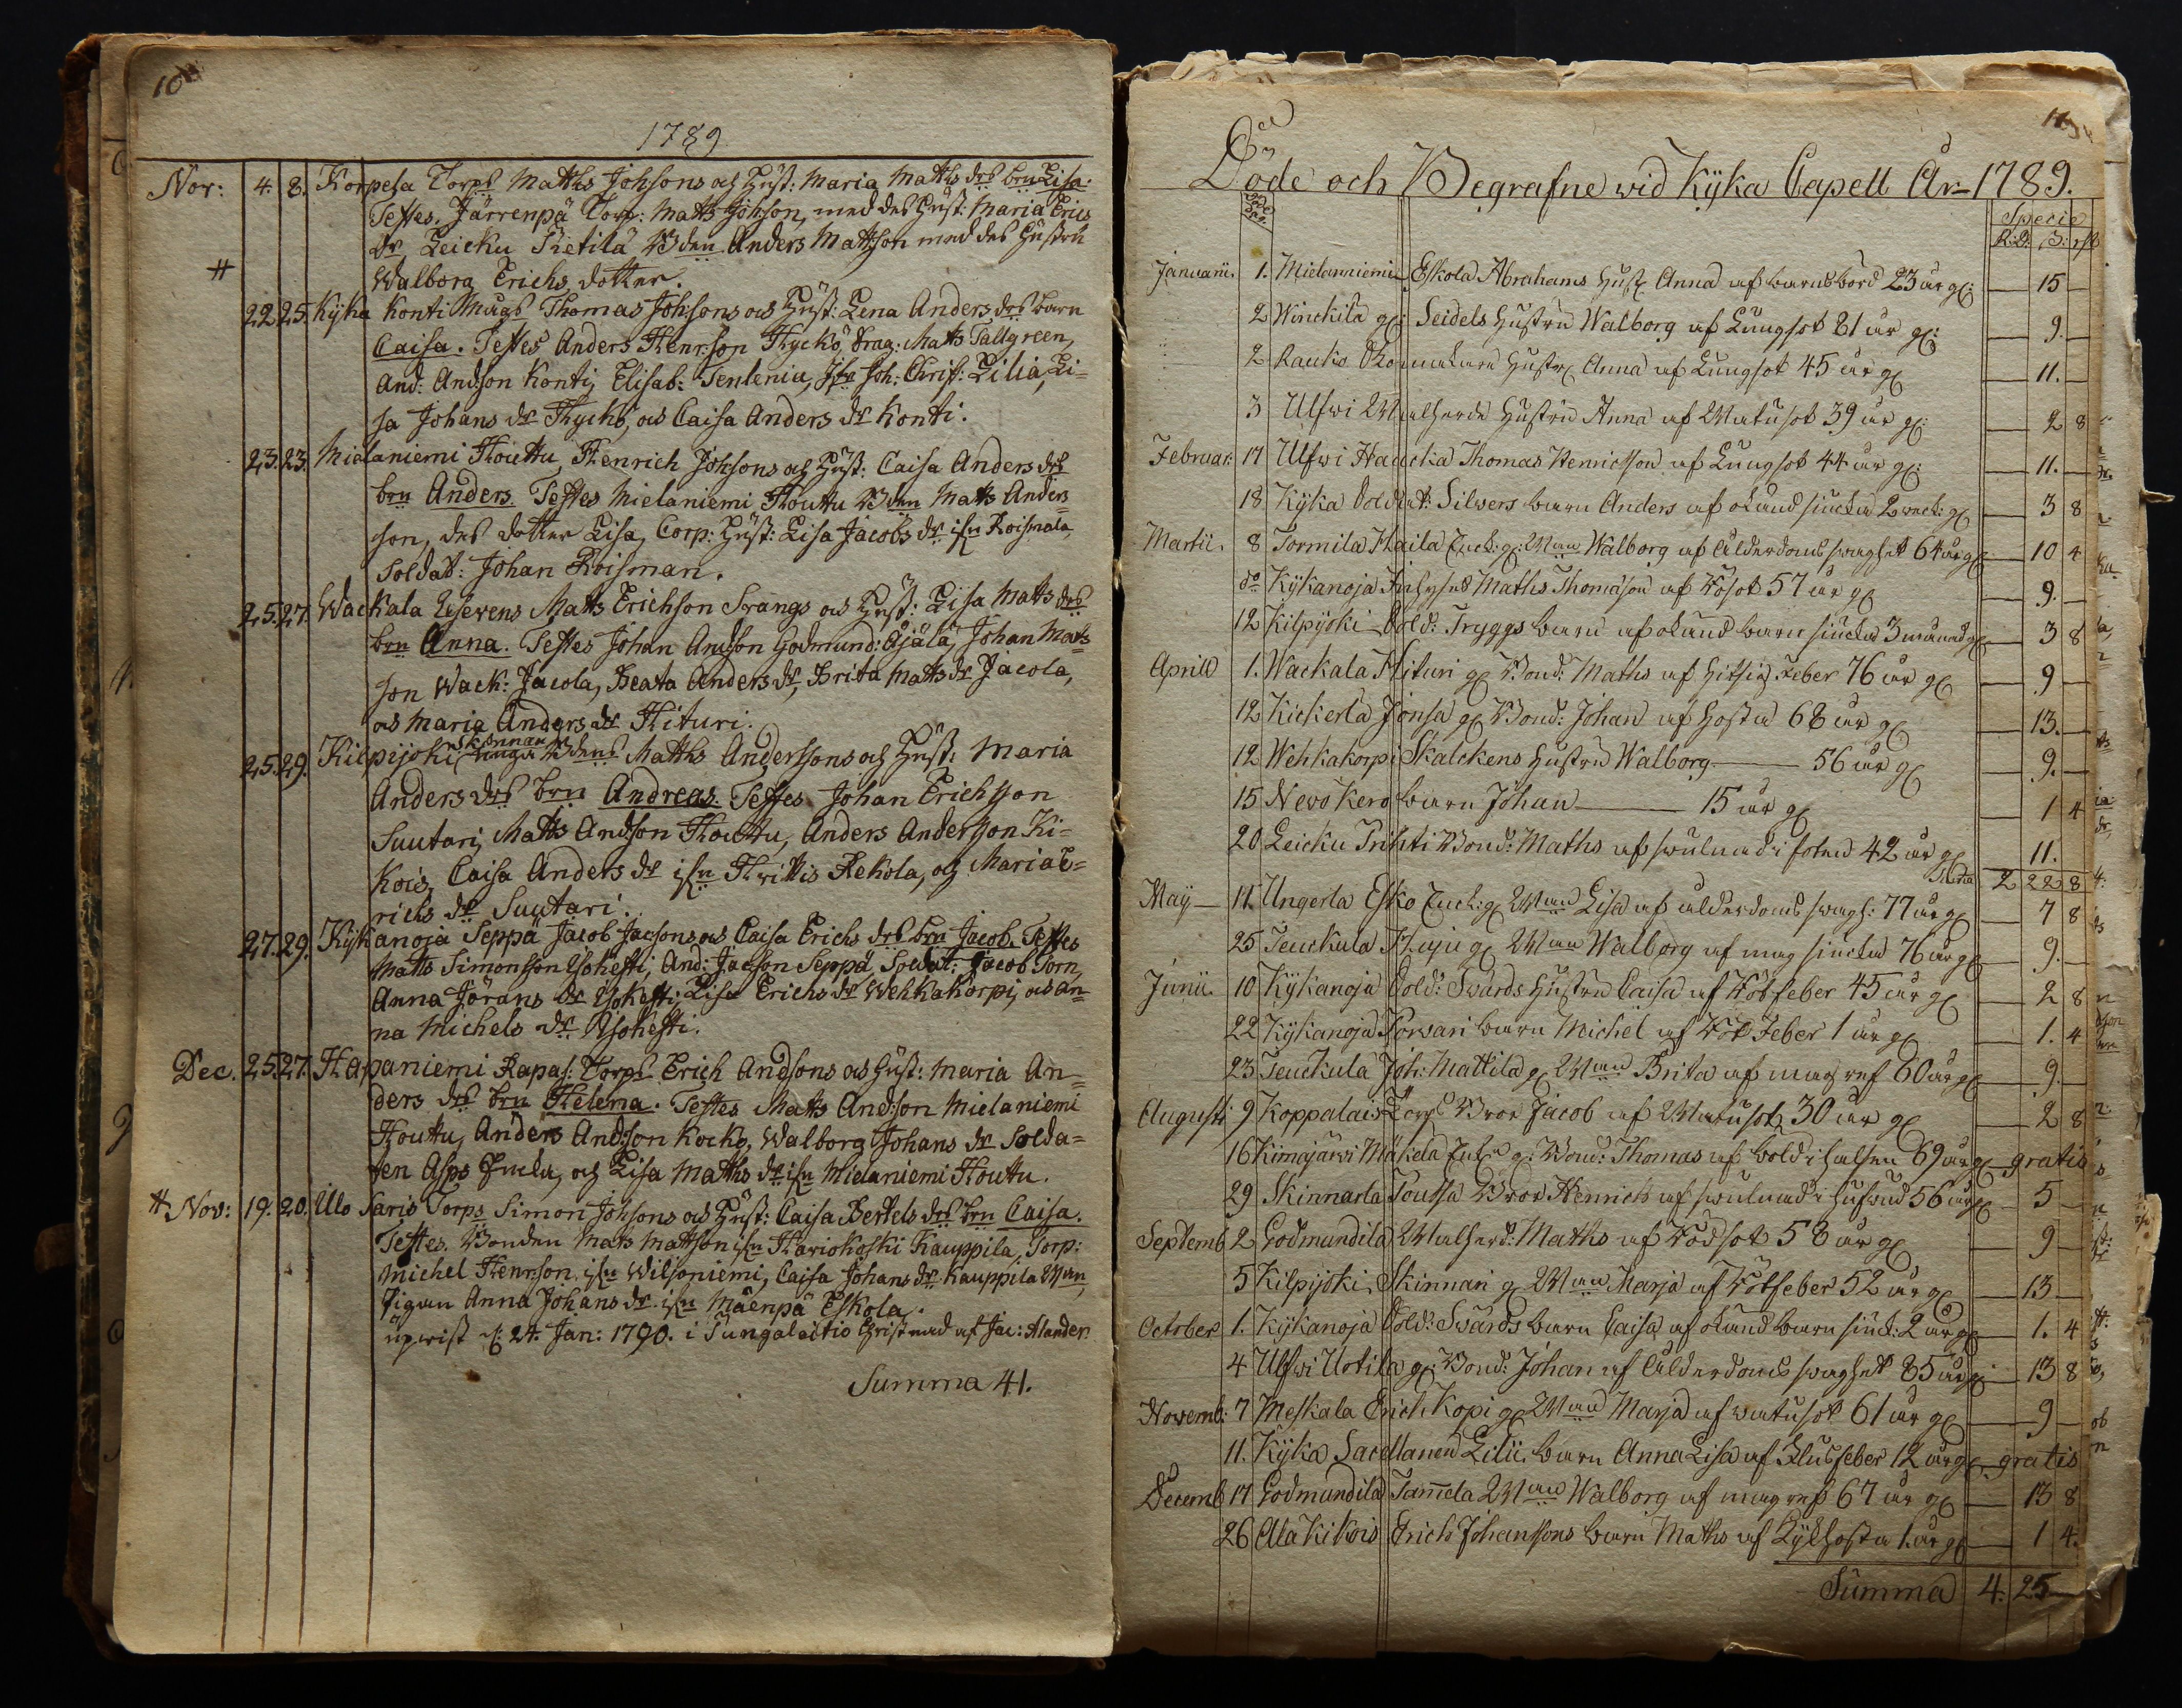 10
1789
Nov: 4. 8. Korpela Torps Matths Johsons och Hust: Maria Matths drs brn Lisa.
Testes. Järrenpä Torp: Matts Johson, med des Hust: Maria Erics
dr, Leicku Ketila Bden Anders Mattson med des Hustru
# Walborg Erichs dotter.
22. 25. Kyka Konti Mågs Thomas Johsons och Hust: Lena Anders drs barn
Caisa. Testes Anders Henr:son Hyckö, Drag: Matts Tallgreen,
And: Andson Konti, Elisab: Tenlenia, Jfr Joh: Christ: Lilia, Li-
sa Johans dr Hyckö, och Caisa Anders dr Konti.
23. 23. Mielaniemi Houttu, Henrich Johsons och Hust: Caisa Anders drs
brn Anders. Testes Mielaniemi Houttu Bden Matts Anders-
son, des dotter Lisa, Corp: Hust: Lisa Jacobs dr ifrn Roismala,
Soldat: Johan Roisman.
25. 27. Wackala Matts Erichson Srangs och Hust: Lisa Matts drs
brn Anna. Testes Johan Andson Godmund: Äjälä, Johan Mats-
son Wack: Jacola, Beata Anders dr, Brita Matts dr Jacola,
och Maria Anders dr Hituri.
25. 29. Kilpijoki Skinnari Bdens Matths Anderssons och Hust: Maria
Anders drs brn Andreas. Testes Johan Erichsson
Suutari, Matts Andson Houttu, Anders Andersson Ki-
kois, Caisa Anders dr ifrn Hrittis Rekola, och Maria E-
richs dr Suutari.
27. 29. Kykanoja Seppä Jacob Jacsons och Caisa Erichs drs brn Jacob. Testes
Matts Simonsson Isohesti, And: Jacson Seppä, Soldat: Jacob Torn,
Anna Jörans dr Isohesti, Lisa Erichs dr Wehkakorpi, och An-
na Michels dr Isohesti.
Dec. 25. 27. Hapaniemi Rapas: Torps Erich Andsons och Hust: Maria An-
ders drs brn Helena. Testes Matts Andson Mielaniemi
Houttu, Anders Andson Kocko, Walborg Johans dr Solda-
ten Asps Encka, och Lisa Maths dr ifrn Mielaniemi Houttu.
# Nov: 19. 20. Ulo Saris Torps Simon Johsons och Hust: Caisa Bertels drs brn Caisa.
Testes. Bonden Mats Mattson ifrn Hariokoski Kauppila, Torp:
Michel Henrson ifrn Wiljoniemi, Caisa Johans dr Kauppila Wan,
Pigan Anna Johans dr ifrn Mäenpä Eskola.
upwist d: 24. Jan: 1790. i Pungalaitio Christnad af Jac: Alander.
Summa 41.
11
Döde och Begrafne wid Kyka Capell År 1789.
Specie
R:D: ß: rst
Januarii. 1. Mielanniemi Eskola Abrahams Hust. Anna af barnsbörd 23 år gl: 15
2 Winckilä gl: Seidels Hustru Walborg af Lungsot 81 år gl: 9.
2 Rauko Skomakare Hustr Anna af Lungsot 45 år gl 11.
3 Ulfwi Wallherde Hustru Anna af Watusot 39 år gl: 2 8
Februar: 17 Ulfwi Haucka Thomas Henricsson af Lungsot 44 år gl: 11.
18 Kyka Soldat: Silwers barn Anders af okänd siucka 2 weck: gl 3 8
Martii. 8 Tormila Haila Enck: gl: Wan Walborg af ålderdoms swaghet 64 år gl 10 4
do Kykanoja Inhyses Maths Thomason af Rösot 57 år gl 9.
12 Kilpijoki Sold: Tryggs barn af okänd barn siucka 3 månad gl 3 8
Aprill 1. Wackala Hituri gl Bond: Maths af hitsig Feber 76 år gl 9
12 Kickerla Jönsa gl Bond: Johan af Hosta 68 år gl 13.
12 Wehkakorpi Skalckens Hustru Walborg 56 år gl 9.
15 Nevo Kero barn Johan 15 år gl 1 4
20 Leicku Trihti Bond: Maths af swulnad i foten 42 år gl 11.
2 22 8
Maij 11. Ungerla Esko Enck: gl Wan Lisa af ålderdoms swagh: 77 år gl 7 8
25 Teuckula gl Wan Walborg af mag siucka 76 år gl 9.
Junii. 10 Kykanoja Sold: Swärds Hustru Caisa af Rötfeber 45 år gl 2 8
22 Kykanoja Porwari barn Michel af Röt Feber 1 år gl 1. 4
23 Teuckula Joh: Mattila gl Wan Brita af mag ref 60 år gl 9.
Augusti 9 Koppalais Torps Bror Jacob af Watusot 30 år gl 2 8
16 Kimajärwi Mäkela gl: Bond: Thomas af bold i halsen 69 år gl gratis
29 Skinnarla Toussa Bror Henrich af swulnad i hufwud 56 år gl 5
Septemb 2 Godmundila Wallherd: Maths af Rödsot 58 år gl 9
5 Kilpijoki Skinnari gl Wan Marja af Rötfeber 52 år gl 13
October 1. Kykanoja Sold: Swärds barn Caisa af okänd barn siuck: 2 år gl 1. 4
4 Ulfwi Uotila gl: Bond: Johan af ålderdoms swaghet 85 år gl 13 8
Novemb: 7 Meskala Erich Kopi gl Wan Marja af watusot 61 år gl 9
11. Kyka Sacellanen Lilii barn Anna Lisa af Flusfeber 12 år gl. gratis
Decemb 17 Godmundila Tamela Wan Walborg af mag ref 67 år gl 13 8
26 Ala Kikois Erich Johanssons barn Maths af Kykhosta 1. år gl 1 4.
Summa 4. 25